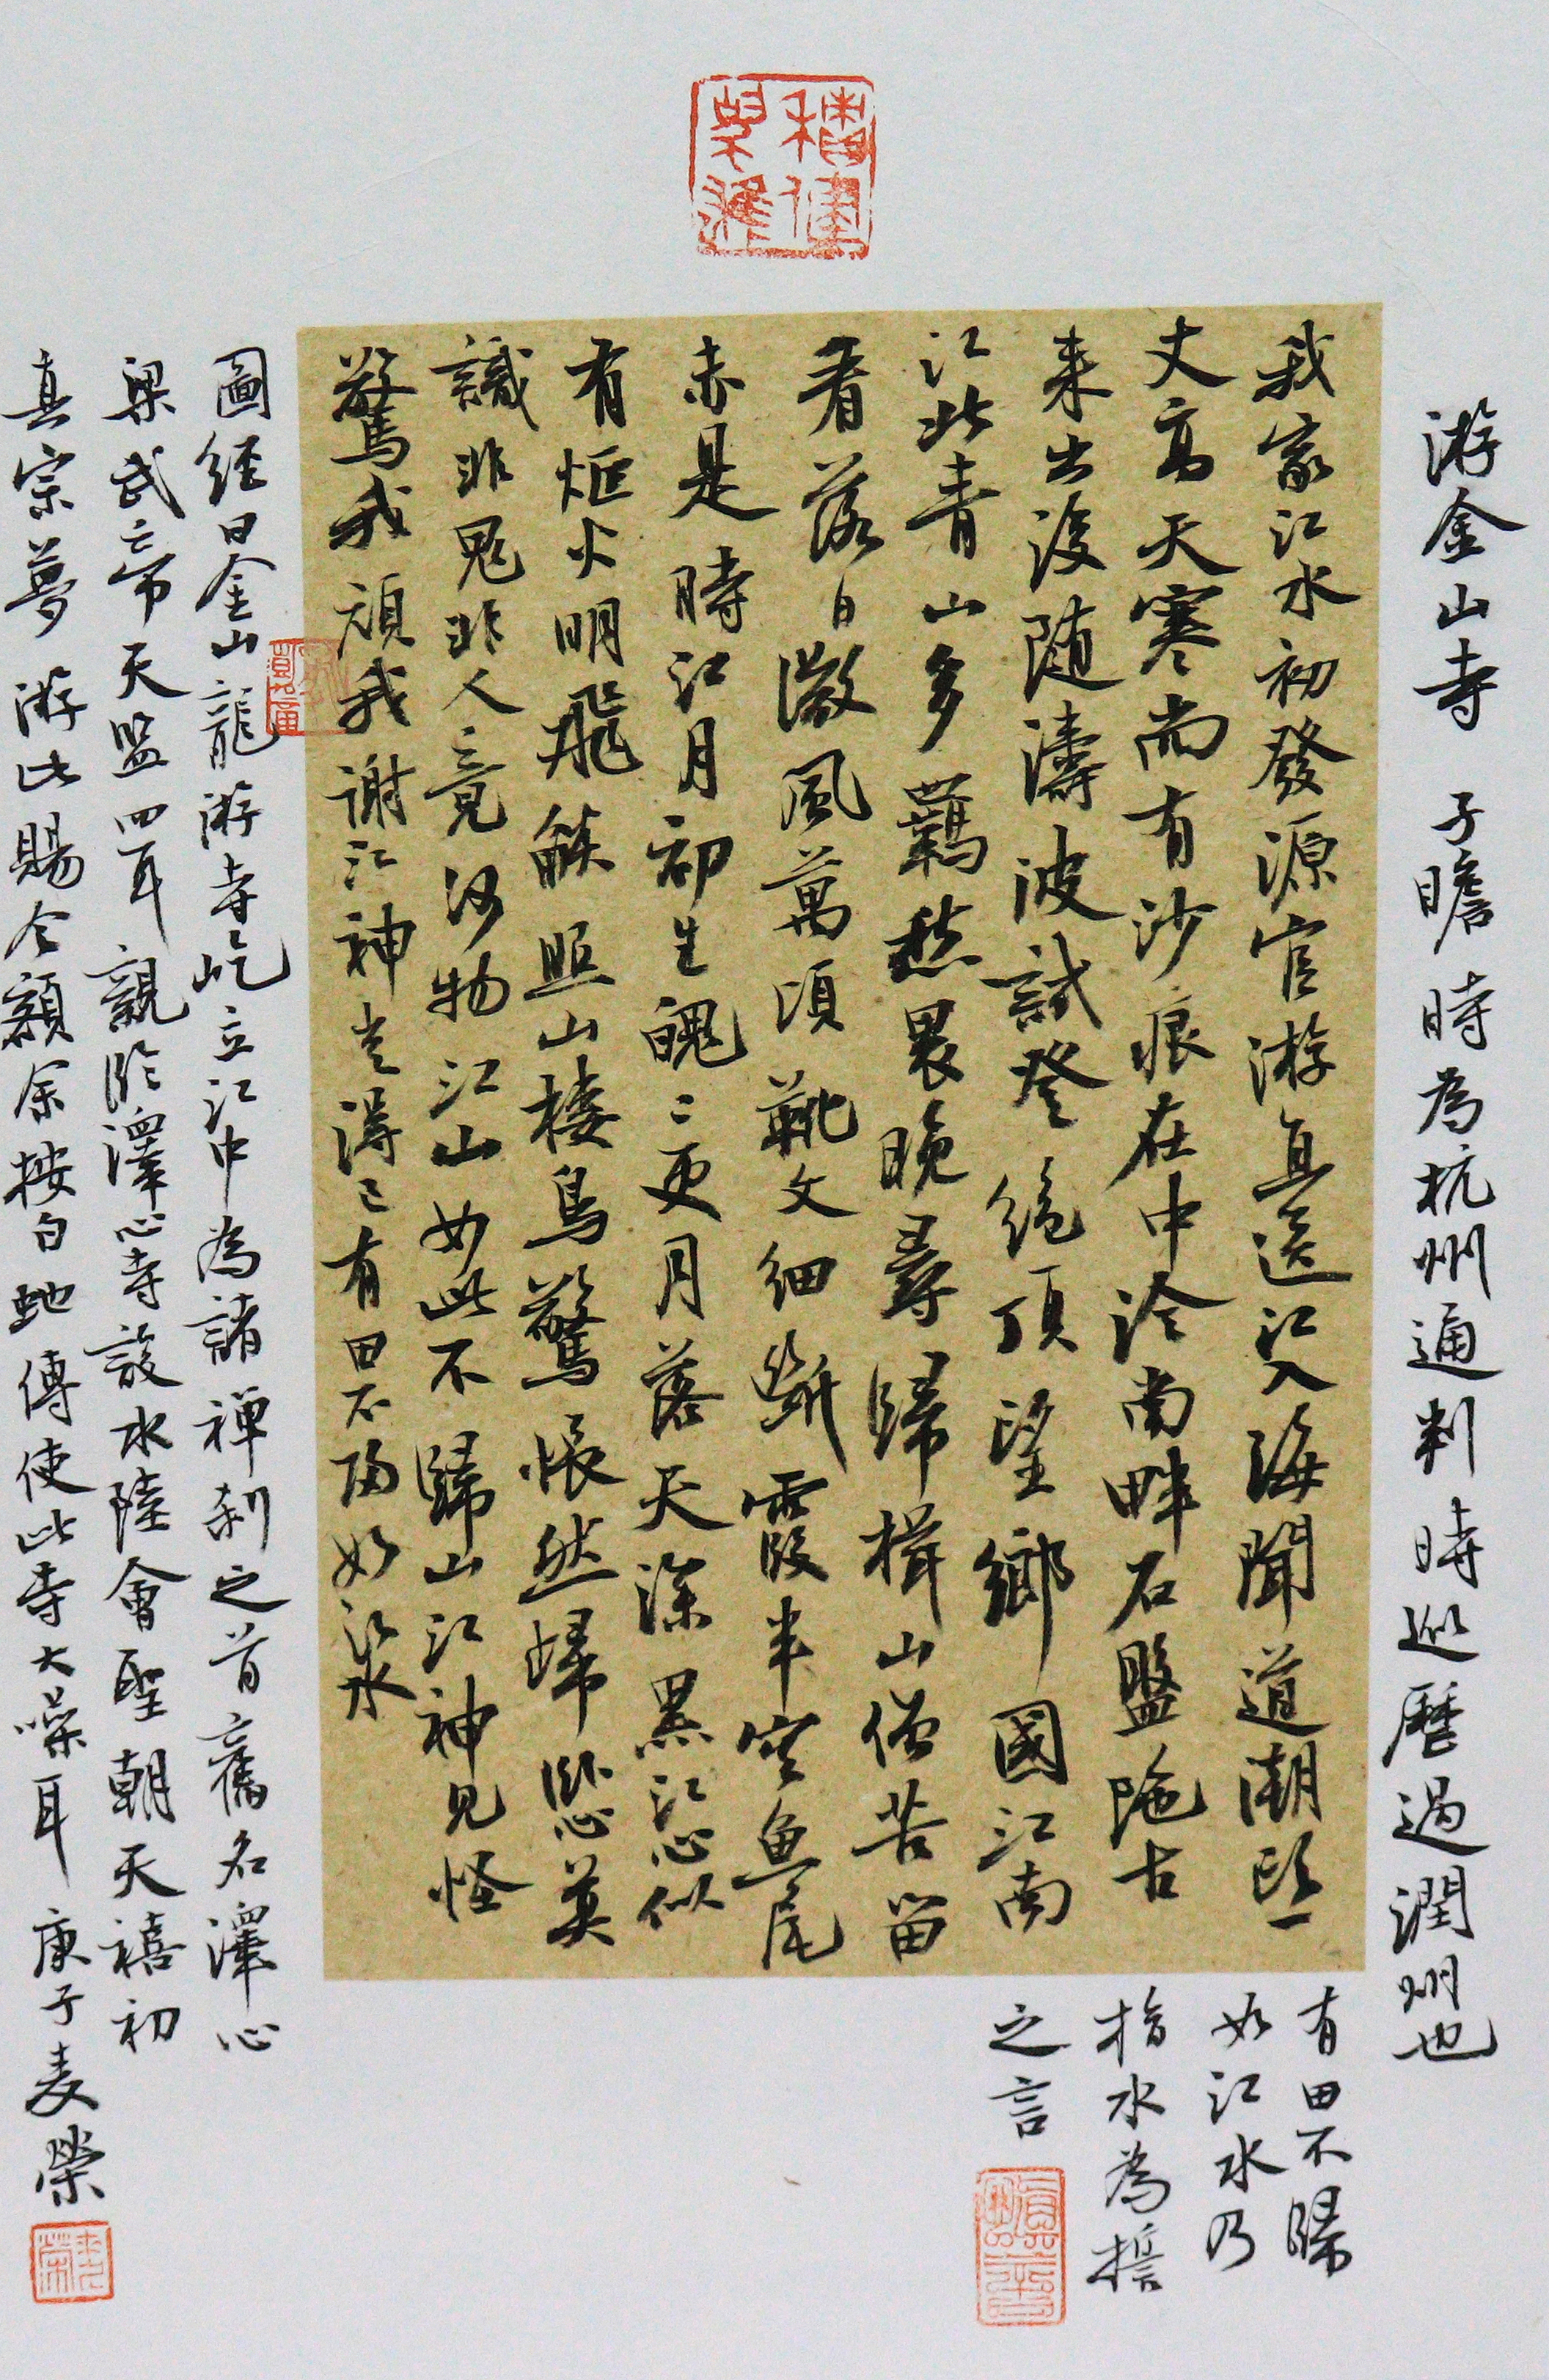 游金山寺 子瞻時為杭州通判時巡歷過潤州也
我家江水初發源官游直送江入海聞道潮頭一
丈高天寒尚有沙痕在中泠南畔石盤陁古
来出沒随濤波試登絶頂望鄉國江南
江北青山多羈愁畏晚尋歸楫山僧苦留
看落日微風萬頃靴文細斷霞半空魚尾
赤是時江月初生魄二更月落天深黑江心似
有炬火明飛燄照山棲鳥驚悵然歸卧心莫
識非鬼非人竟何物江山如此不歸山江神見怪
驚我頑我謝江神豈得已有田不歸如江水
有田不歸
如江水乃
指水為誓
之言
圖經曰金山龍游寺屹立江中為諸禅刹之首舊名澤心
梁武帝天監四年親臨澤心寺設水陸會聖朝天禧初
真宗夢游此賜今額余按白蛇傳使此寺大噪耳 庚子麦榮